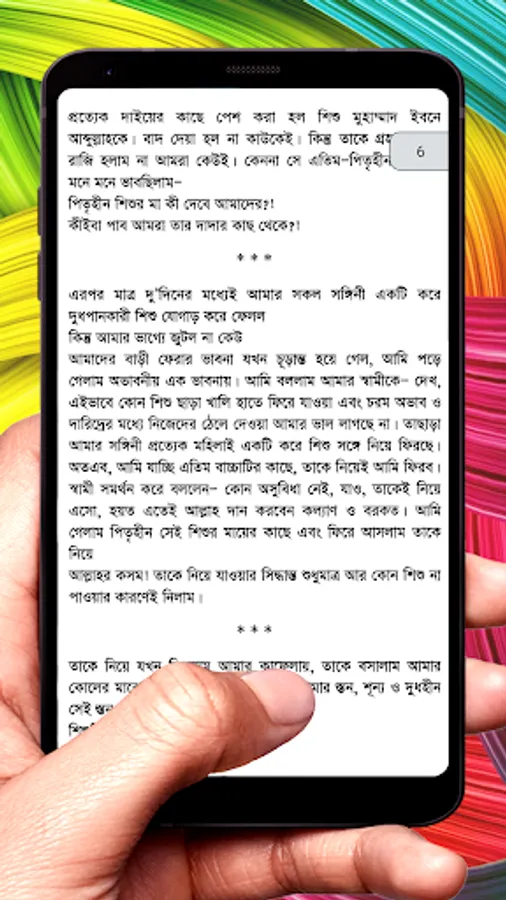 প্রত্যেক দাইয়ের কাছে পেশ করা হল শিশু মুহাম্মাদ ইবনে
আব্দুল্লাহকে। বাদ দেয়া হল না কাউকেই। কিন্তু তাকে
6
রাজি হলাম না আমরা কেউই। কেননা সে এতিম-পিতৃহীন
মনে মনে ভাবছিলাম-
পিতৃহীন শিশুর মা কী দেবে আমাদের?!
কীইবা পাব আমরা তার দাদার কাছ থেকে?!
* * *
এরপর মাত্র দু'দিনের মধ্যেই আমার সকল সঙ্গিনী একটি করে
দুধপানকারী শিশু যোগাড় করে ফেলল
কিন্তু আমার ভাগ্যে জুটল না কেউ
আমাদের বাড়ী ফেরার ভাবনা যখন চূড়ান্ত হয়ে গেল, আমি পড়ে
গেলাম অভাবনীয় এক ভাবনায়। আমি বললাম আমার স্বামীকে- দেখ,
এইভাবে কোন শিশু ছাড়া খালি হাতে ফিরে যাওয়া এবং চরম অভাব ও
দারিদ্রের মধ্যে নিজেদের ঠেলে দেওয়া আমার ভাল লাগছে না। তাছাড়া
আমার সঙ্গিনী প্রত্যেক মহিলাই একটি করে শিশু সঙ্গে নিয়ে ফিরছে।
অতএব, আমি যাচ্ছি এতিম বাচ্চাটির কাছে, তাকে নিয়েই আমি ফিরব।
স্বামী সমর্থন করে বললেন- কোন অসুবিধা নেই, যাও, তাকেই নিয়ে
এসো, হয়ত এতেই আল্লাহ দান করবেন কল্যাণ ও বরকত। আমি
গেলাম পিতৃহীন সেই শিশুর মায়ের কাছে এবং ফিরে আসলাম তাকে
নিয়ে
আল্লাহর কসম! তাকে নিয়ে যাওয়ার সিদ্ধান্ত শুধুমাত্র আর কোন শিশু না
পাওয়ার কারণেই নিলাম।
* * *
তাকে নিয়ে যখন আমার কাফেলায়, তাকে বসালাম আমার
কোলের স্তন, শূন্য ও দুধহীন
সেই স্তন